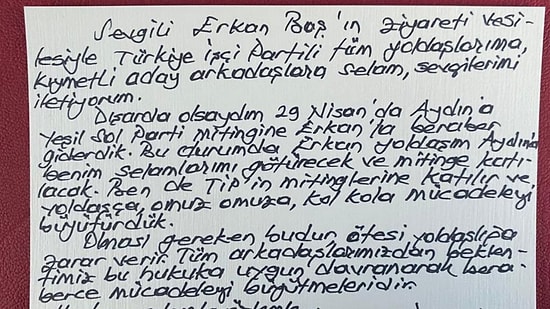 Sevgili Erkan Baş'ın ziyareti vesi-
lesiyle Türkiye işçi Partili tüm yoldaşlarıma,
kıymetli aday arkadaşlara selam, sevgilerimi
iletiyorum.
Dışarda olsaydım 29 Nisan'da Aydın'a
Yeşil Sol Parti mitingine Erkan'la beraber
giderdik. Bu durumda Erkan yoldaşım Aydın'a
benim selamlarımı götürecek ve mitinge katı-
lacak. Ben de TİP'in mitinglerine katılır ve
yoldaşça, omuz omuza, kol kola mücadeleyi
büyütürdük.
Olması gereken budur, ötesi yoldaşlığa
zarar verir. Tüm arkadaşlarımızdan beklen-
timiz bu hukuka uygun davranarak bera-
berce mücadeleyi büyütmeleridir.